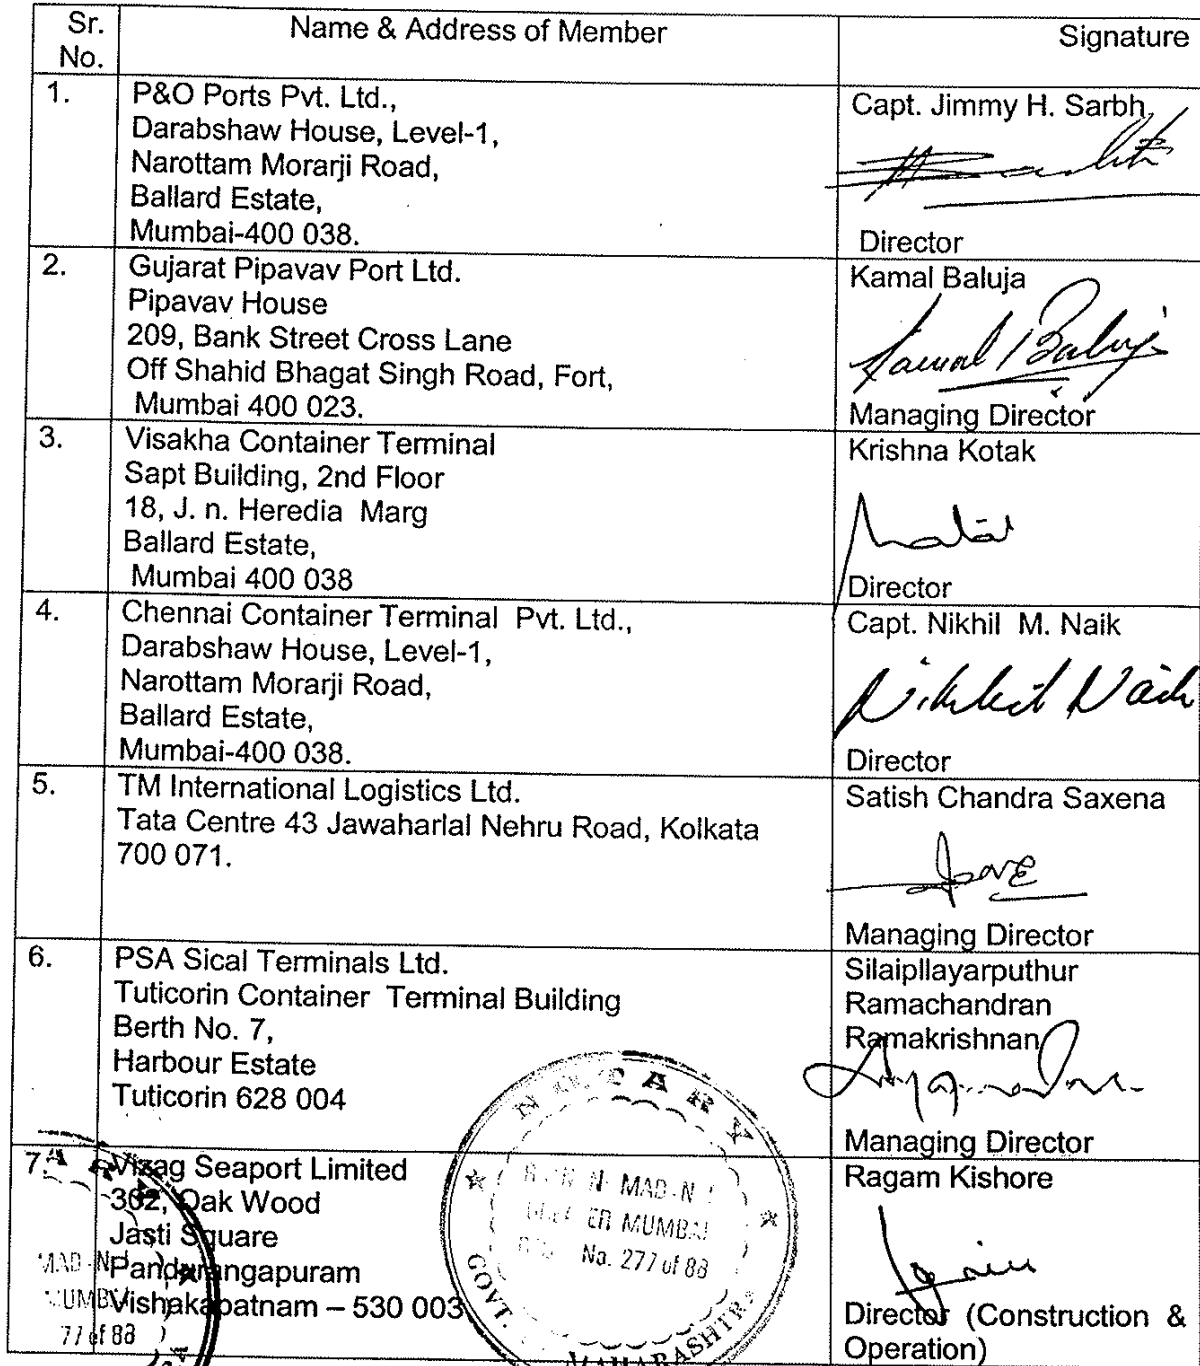 Sr. No.
Name & Address of Member
Signature
1.
P&O Ports Pvt. Ltd.,
Darabshaw House, Level-1,
Narottam Morarji Road,
Ballard Estate,
Mumbai-400 038.
Capt. Jimmy H. Sarbh
Director
2.
Gujarat Pipavav Port Ltd.
Pipavav House
209, Bank Street Cross Lane
Off Shahid Bhagat Singh Road, Fort,
Mumbai 400 023.
Kamal Baluja
Kamal Baluja
Managing Director
3.
Visakha Container Terminal
Sapt Building, 2nd Floor
18, J. n. Heredia Marg
Ballard Estate,
Mumbai 400 038
Krishna Kotak
Director
4.
Chennai Container Terminal Pvt. Ltd.,
Darabshaw House, Level-1,
Narottam Morarji Road,
Ballard Estate,
Mumbai-400 038.
Capt. Nikhil M. Naik
Nikhil Naik
Director
5.
TM International Logistics Ltd.
Tata Centre 43 Jawaharlal Nehru Road, Kolkata
700 071.
Satish Chandra Saxena
Managing Director
6.
PSA Sical Terminals Ltd.
Tuticorin Container Terminal Building
Berth No. 7,
Harbour Estate
Tuticorin 628 004
Silaipllayarputhur
Ramachandran
Ramakrishnan
Managing Director
7.
Vizag Seaport Limited
302, Oak Wood
Jasti Square
Pandurangapuram
Vishakapatnam – 530 003
Ragam Kishore
Director (Construction &
Operation)
NOTARY
MUMBAI
No. 277 of 88
GOVT.
MAHARASHTRA
77 of 88